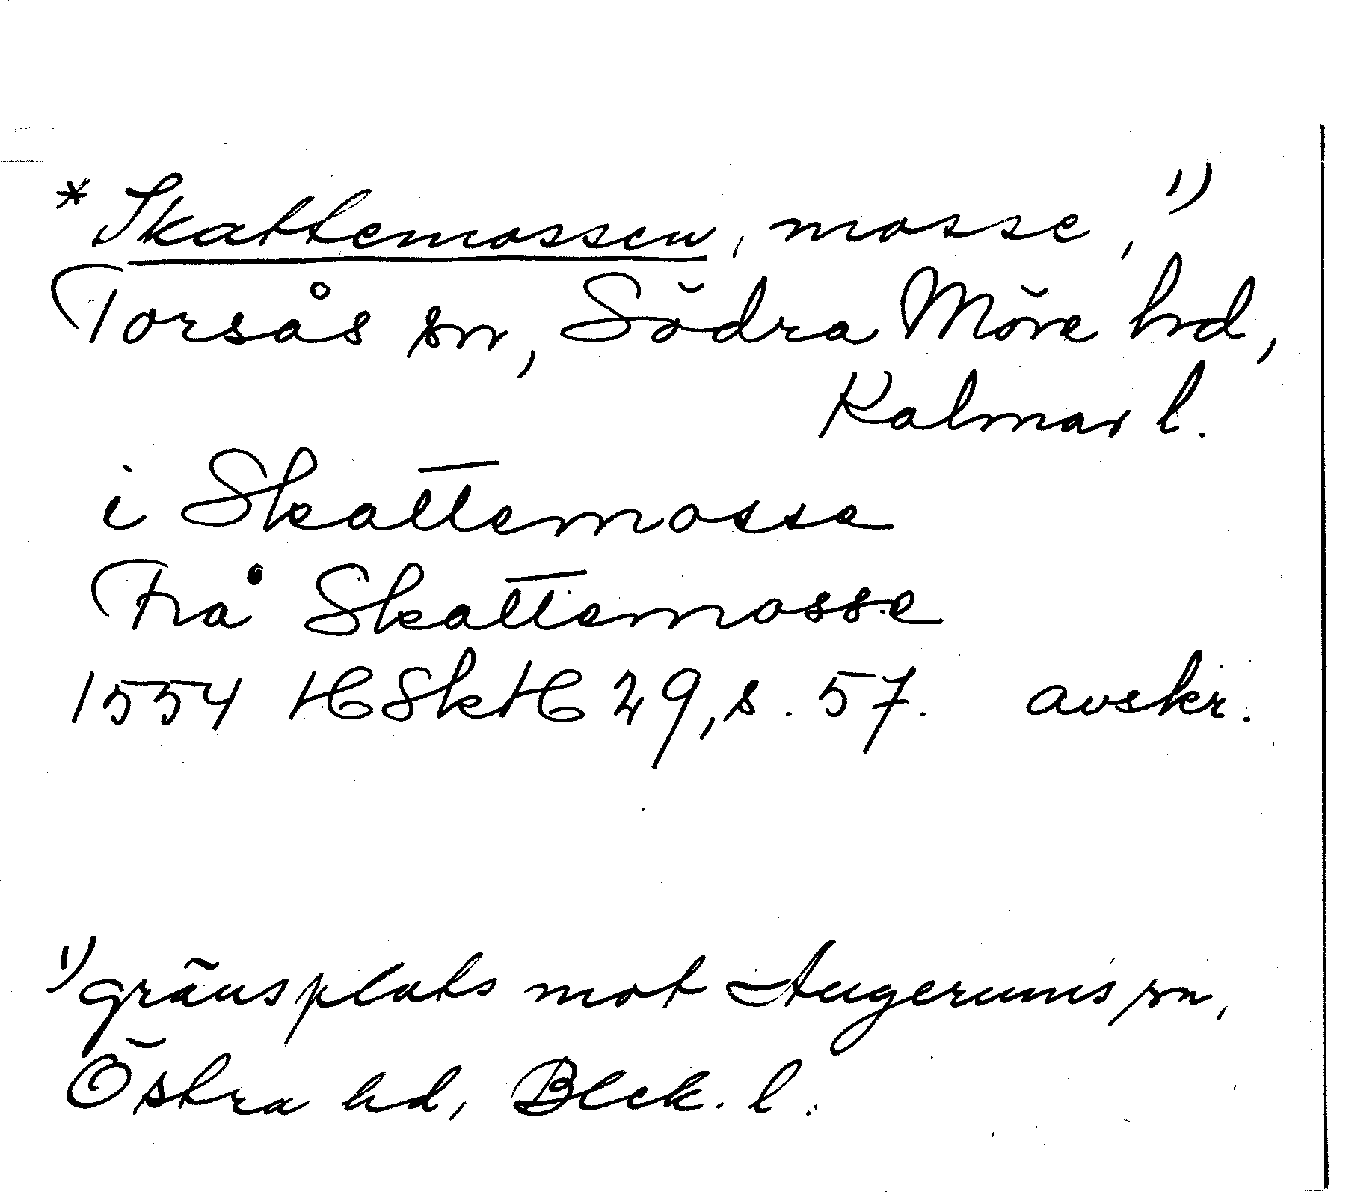 *Skattemossen, mosse, 1)
Torsås sn, Södra Möre hd,
Kalmar l.
i Skattemosse
Frå Skattemosse
1554 HSkH 29, s. 57. avskr.
1) gränsplats mot Augerums sn,
Östra hd, Blek. l.